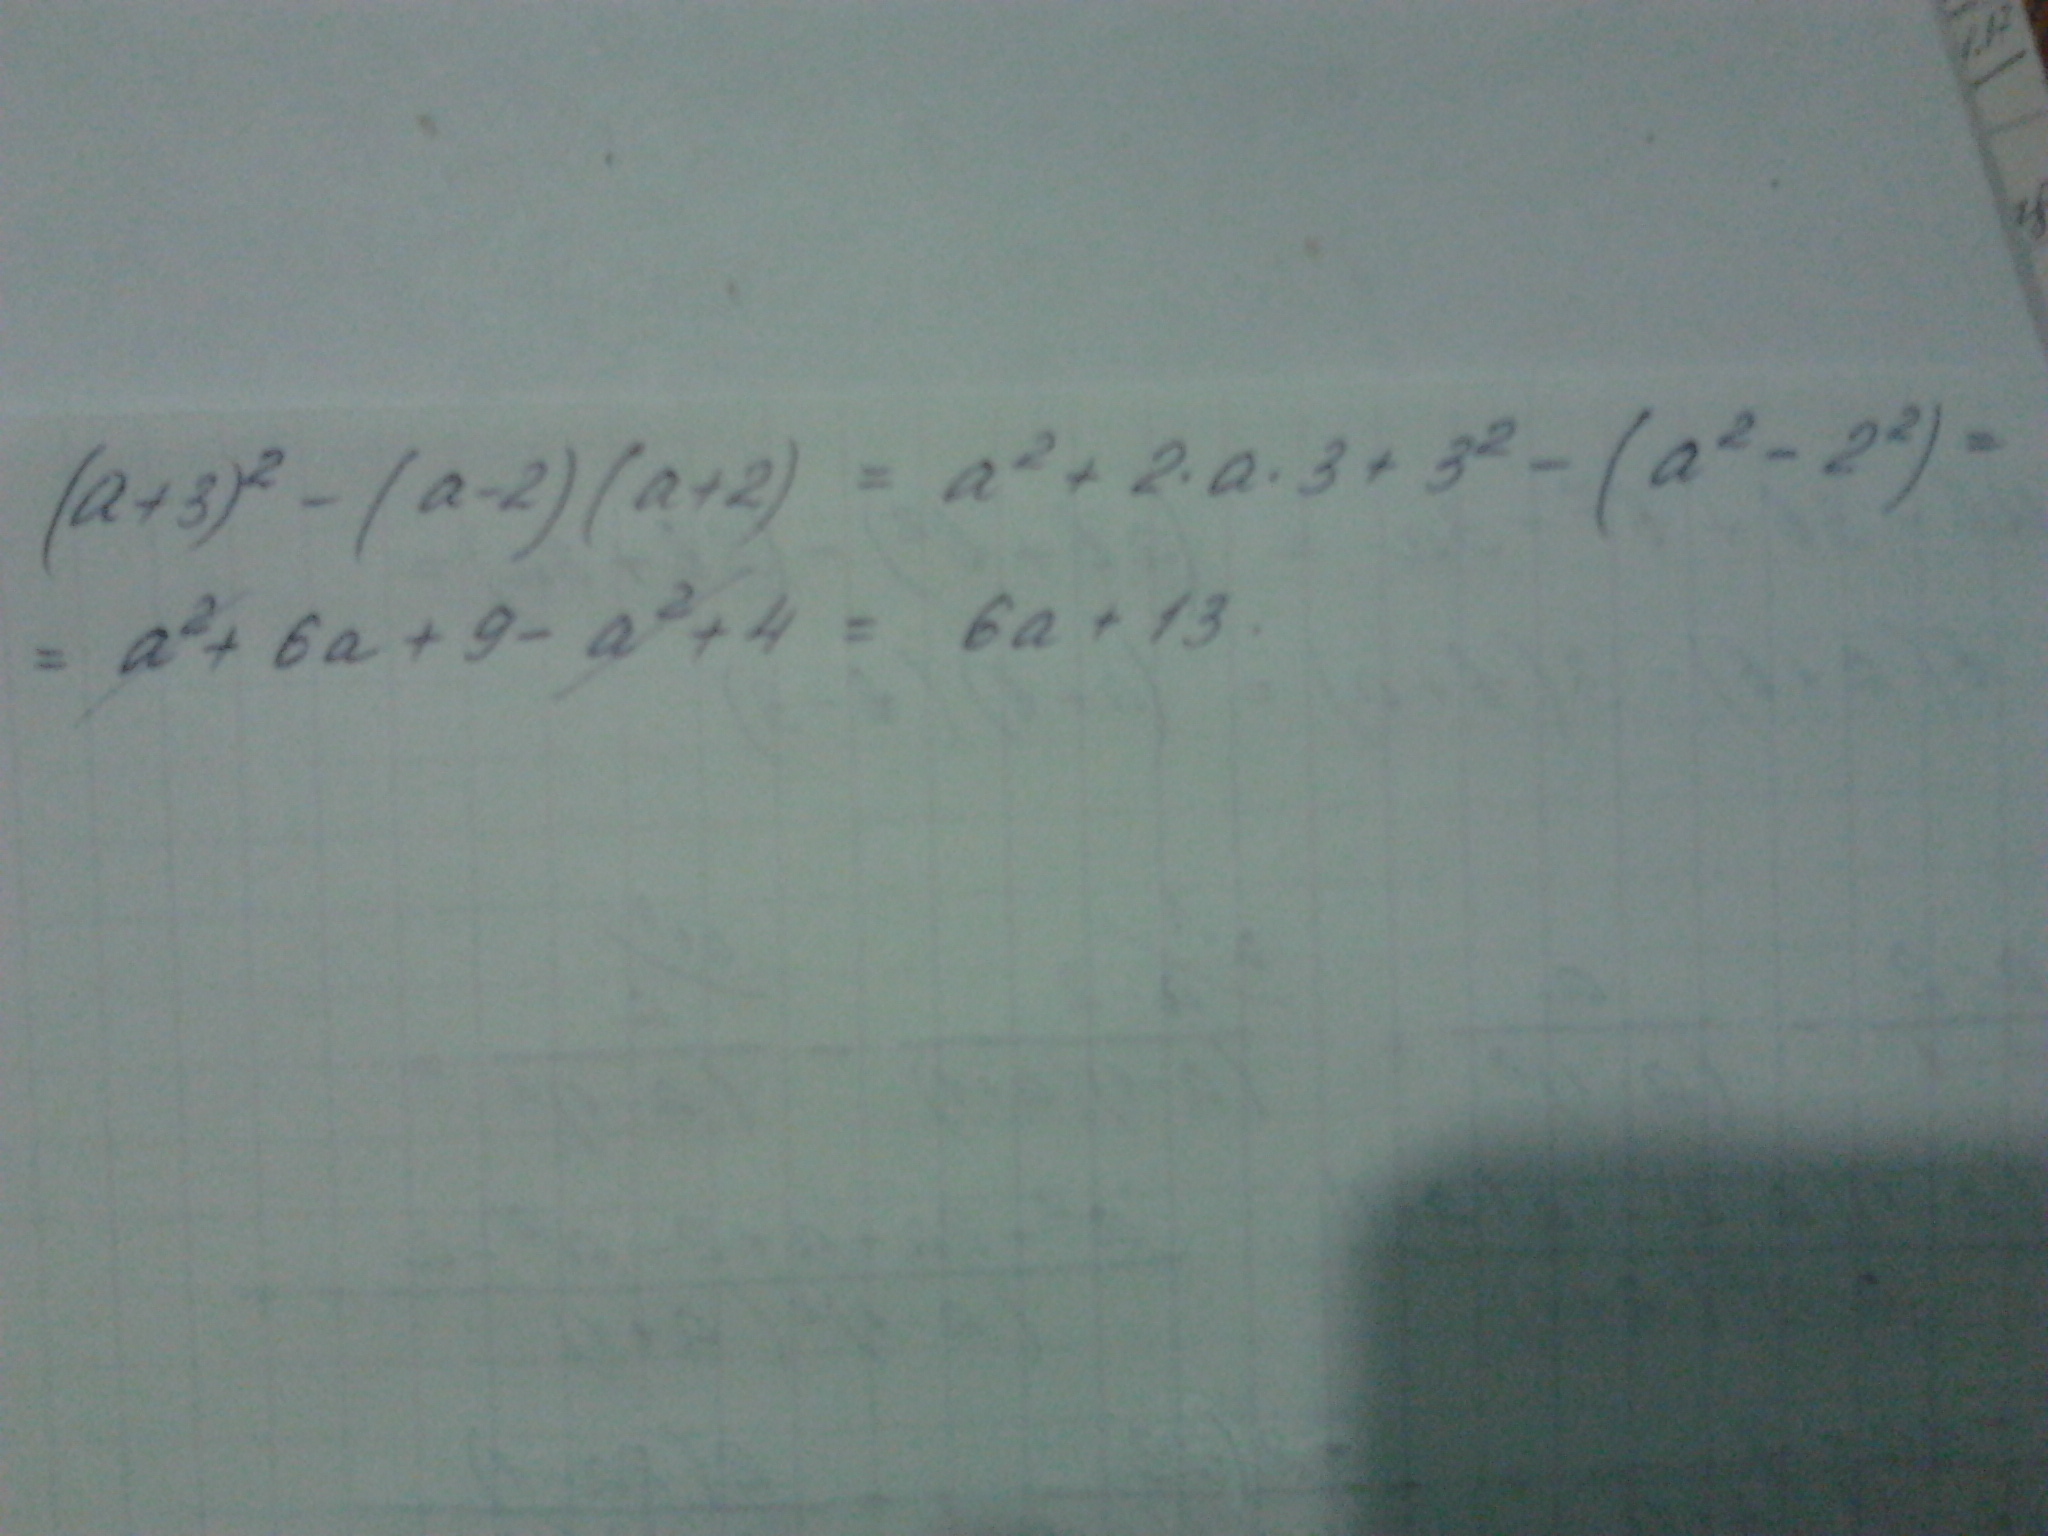 (a+3)² - (a-2)(a+2) = a² + 2·a·3 + 3² - (a² - 2²) =
= a² + 6a + 9 - a² + 4 = 6a + 13.